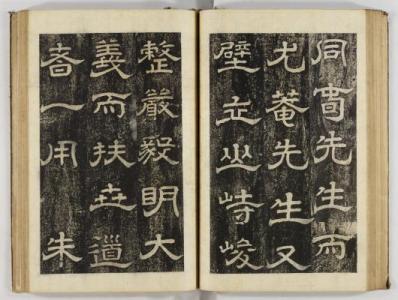 同春先生而
尤菴先生又
壁立山峙峻
整嚴毅明大
義而扶世道
者一用　朱